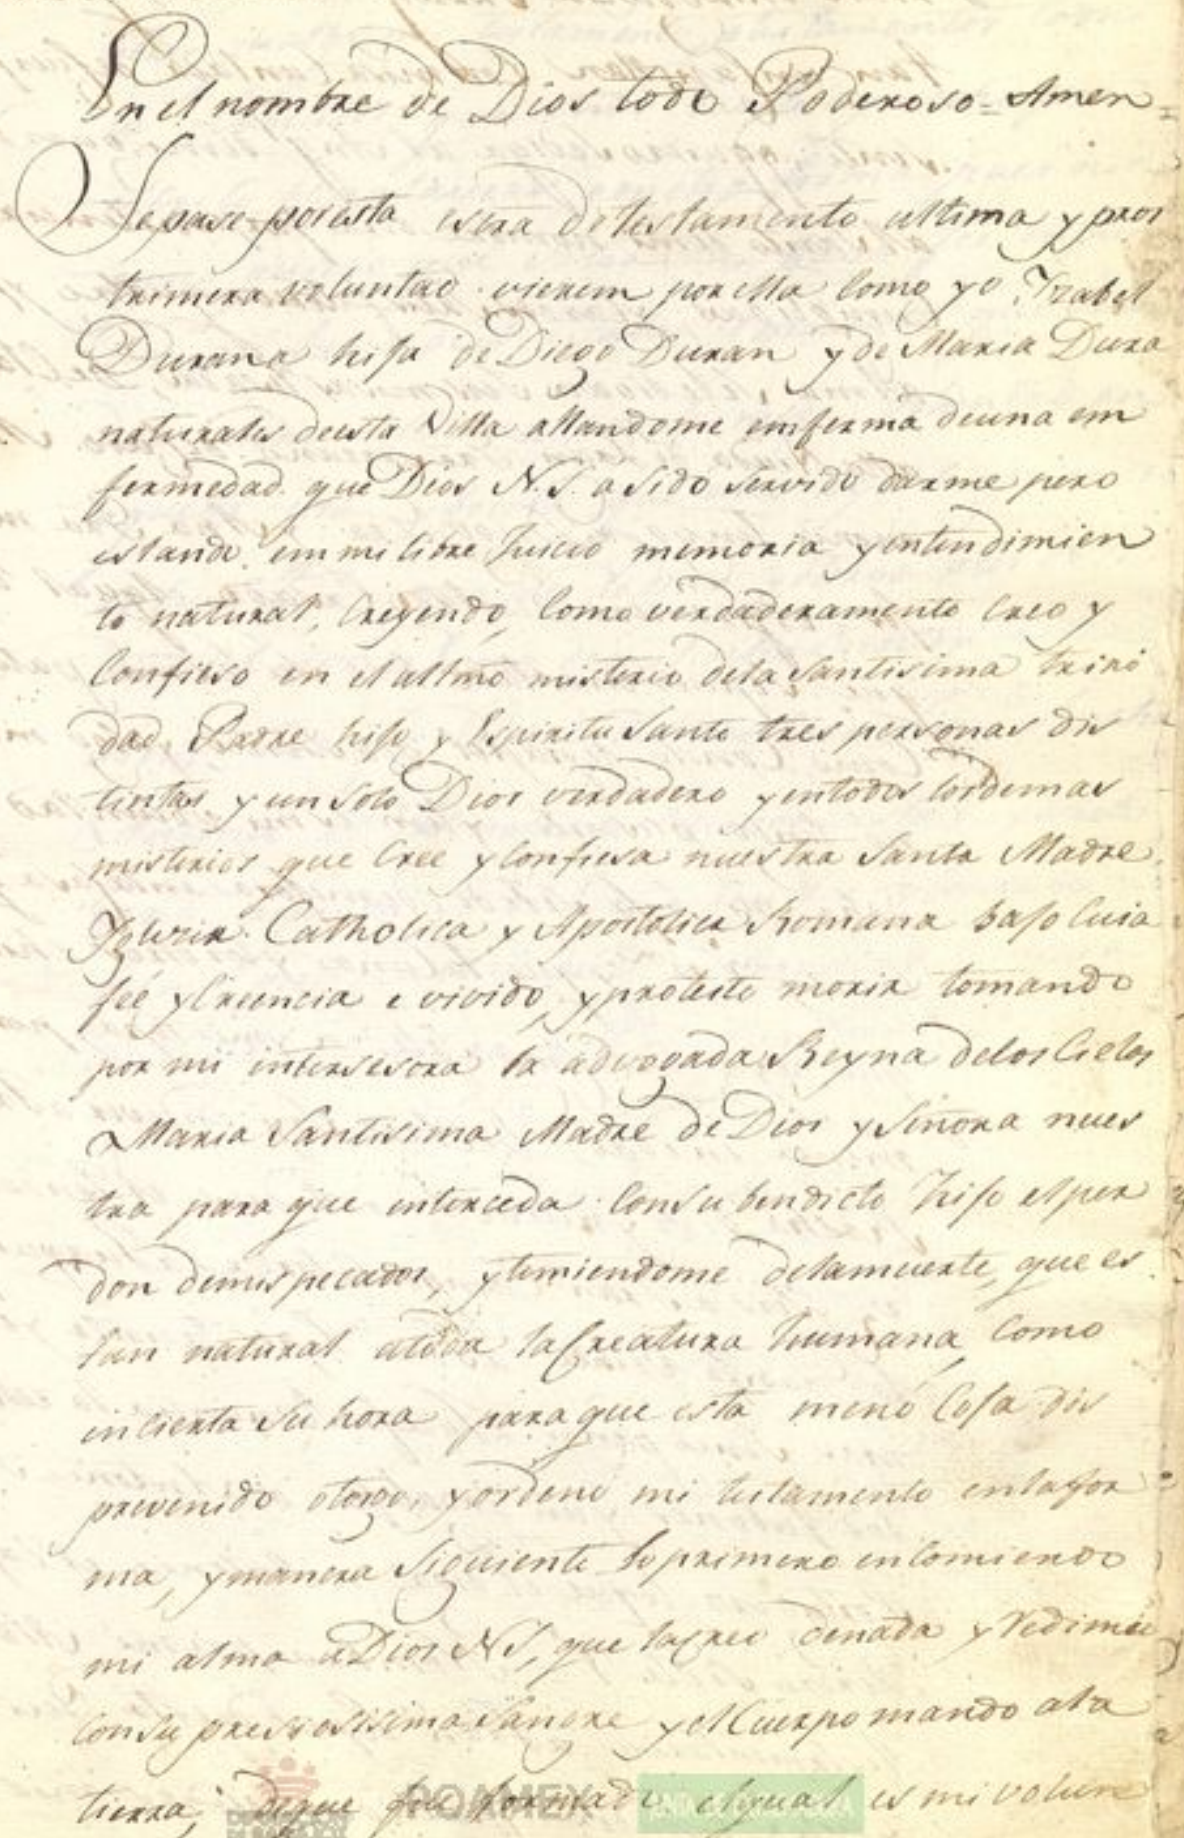 En el nombre de Dios todo Poderoso = Amen =
Sepase por esta esxra de testamento ultima y pros
trimera voluntad vierem por ella Como yo Yzabel
Durana hija de Diego Duran y de Maria Dura
naturales de esta Villa allandome emferma de una em
fermedad que Dios N.S. a sido servido darme pero
estando em mi libre Juicio memoria y entendimien
to natural, Creyendo, Como verdaderamente Creo y
Confieso en el altmo misterio de la Santisima trini
dad Padre hijo y Espiritu Santo tres personas dis
tintas y un Solo Dios verdadero y en todos los demas
misterios que Cree y Confiesa nuestra Santa Madre
Yglesia Catholica y Apostolica Romana bajo Cuia
feé y Creencia e vivido, y protesto morir tomando
por mi intersesora la advogada Reyna de los Cielos
Maria Santisima Madre de Dios y Señora nues
tra para que interceda Con Su bendicto hijo el per
don de mis pecados, y temiendome de la muerte, que es
tan natural a toda la Creatura humana, Como
incierta Su hora para que esta me no Coja dis
prevenido otorgo, y ordeno mi testamento en la for
ma, y manera Siguiente lo primero encomiendo
mi alma a Dios N S, que la Creo denada y Redimio
Con Su pressiosisima Sangre y el Cuerpo mando a la
tierra, deque fue formado elqual es mi volun
PARES